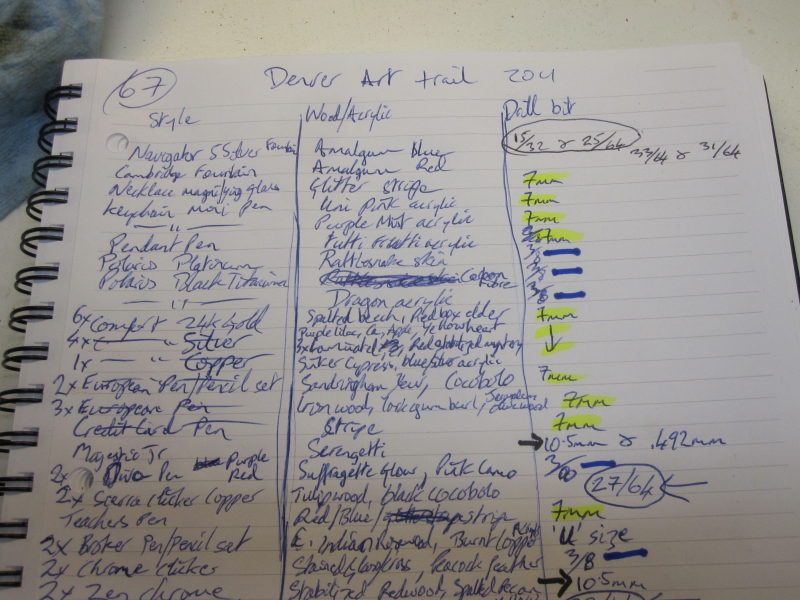 67 Denver Art trail 2011
Style Wood/Acrylic Drill bit
15/32 or 25/64 33/64 or 31/64
Navigator S Silver Fountain Amalgum Blue
Cambridge Fountain Amalgum Red
Necklace magnifying glass Glitter stripe 7mm
Keychain Mini Pen Uni Pink acrylic 7mm
—"— Purple Mist acrylic 7mm
Pendant Pen Tutti Frutti acrylic 7mm
Polaris Platinum Rattlesnake skin 3/8
Polaris Black Titanium Carbon Fibre 3/8
—"— Dragon acrylic 3/8
6x Comfort 24k Gold Spalted beech, Red box elder 7mm
4x —"— Silver Purple lilac, Apple, Yellowheart
1x —"— Copper Sinker Cypress, blue acrylic
2x European Pen/Pencil set Sandringham Yew, Cocobolo 7mm
3x European Pen Ironwood, York gum burl, Jerusalem olivewood 7mm
Credit Card Pen Stripe 7mm
Majestic Jr Serengetti 10.5mm or .492mm
2x Diva Pen Purple Red Suffragette Glow, Pink Camo 3/8
2x Sierra clicker Copper Tulipwood, black cocobolo 27/64
Teachers Pen Red/Blue/ stripe 7mm
2x Broker Pen/Pencil set E. Indian Rosewood, Burnt Copper 'U' size
2x Chrome clicker Peacock Feather 3/8
2x Zen chrome Stabilized Redwood, Spalted Pecan 10.5mm